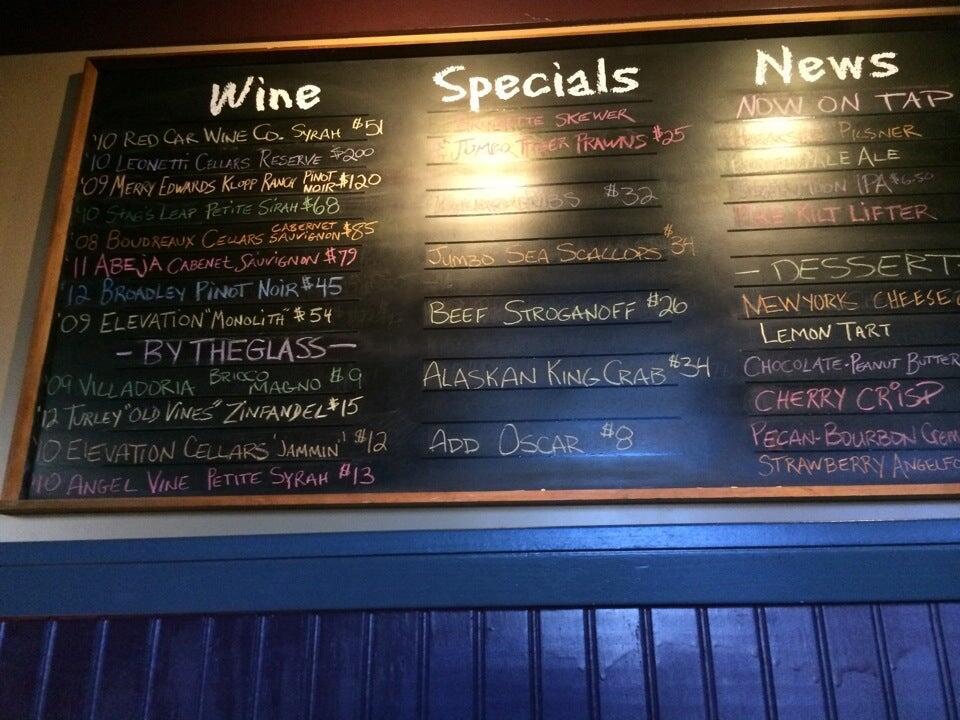 Wine
'10 RED CAR WINE CO. SYRAH $51
'10 LEONETTI CELLARS RESERVE $200
'09 MERRY EDWARDS KLOPP RANCH PINOT NOIR $120
'10 STAG'S LEAP PETITE SIRAH $68
'08 BOUDREAUX CELLARS CABERNET SAUVIGNON $85
'11 ABEJA CABENET SAUVIGNON $79
'12 BROADLEY PINOT NOIR $45
'09 ELEVATION "MONOLITH" $54
- BY THE GLASS -
'09 VILLADORIA BRICCO MAGNO $9
'12 TURLEY "OLD VINES" ZINFANDEL $15
'10 ELEVATION CELLARS 'JAMMIN' $12
'10 ANGEL VINE PETITE SYRAH $13
Specials
SKEWER
& JUMBO TIGER PRAWNS $25
$32
JUMBO SEA SCALLOPS $34
BEEF STROGANOFF $26
ALASKAN KING CRAB $34
ADD OSCAR $8
News
NOW ON TAP
PILSNER
PALE ALE
MOON IPA $6.50
KILT LIFTER
- DESSERT
NEW YORK CHEESE
LEMON TART
CHOCOLATE-PEANUT BUTTER
CHERRY CRISP
PECAN-BOURBON
STRAWBERRY ANGELFO